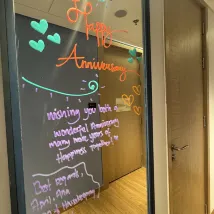 Happy
Anniversary
wishing you both a
wonderful Anniversary
many more years of
Happiness together!
Best regards,